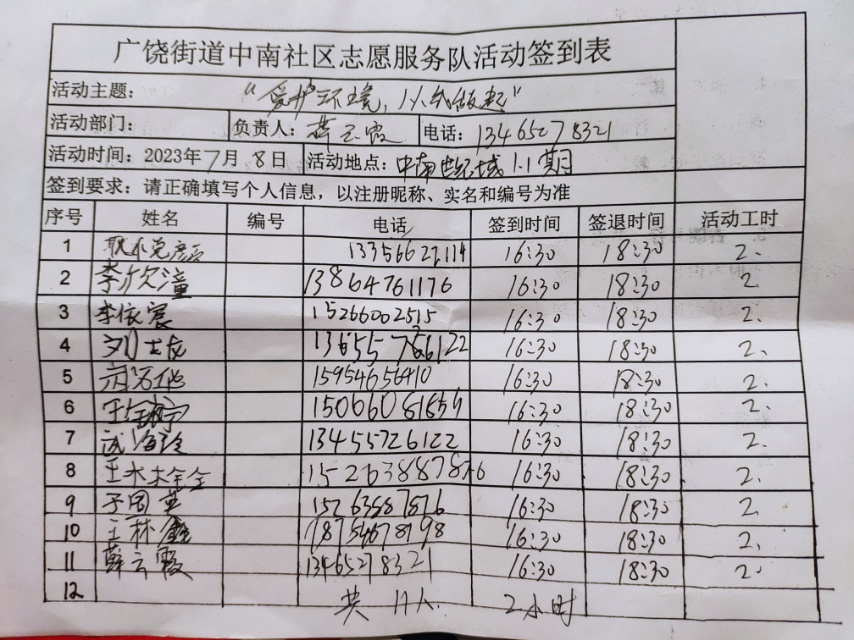 广饶街道中南社区志愿服务队活动签到表
活动主题： “爱护环境，从我做起”
活动部门： 负责人：薛云霞 电话：13465278321
活动时间：2023年7月8日 活动地点：中南世纪城1.1期
签到要求：请正确填写个人信息，以注册昵称、实名和编号为准
序号 姓名 编号 电话 签到时间 签退时间 活动工时
1 16:30 18:30 2.
2 李 潼 13864761176 16:30 18:30 2.
3 李依宸 15266002515 16:30 18:30 2.
4 刘士友 16:30 18:30 2.
5 15954656410 16:30 18:30 2.
6 王 宁 16:30 18:30 2.
7 武海玲 13455726122 16:30 18:30 2.
8 王 16:30 18:30 2.
9 16:30 18:30 2.
10 王林鑫 18754678198 16:30 18:30 2.
11 薛云霞 13465278321 16:30 18:30 2.
12 共11人. 2小时